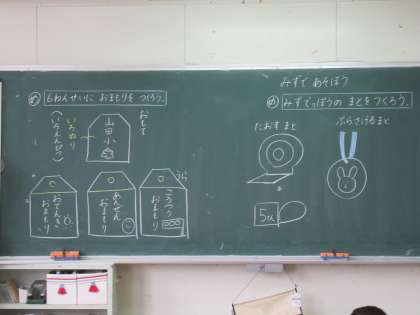 め 1ねんせいに おまもりを つくろう。
おもて
山田小
いろぬり
(いろえんぴつ)
うら
こうつう
おまもり
あんぜん
おまもり
おてんき
おまもり
みずで あそぼう
め みずでっぽうの まとをつくろう。
たおすまと
ぶらさげるまと